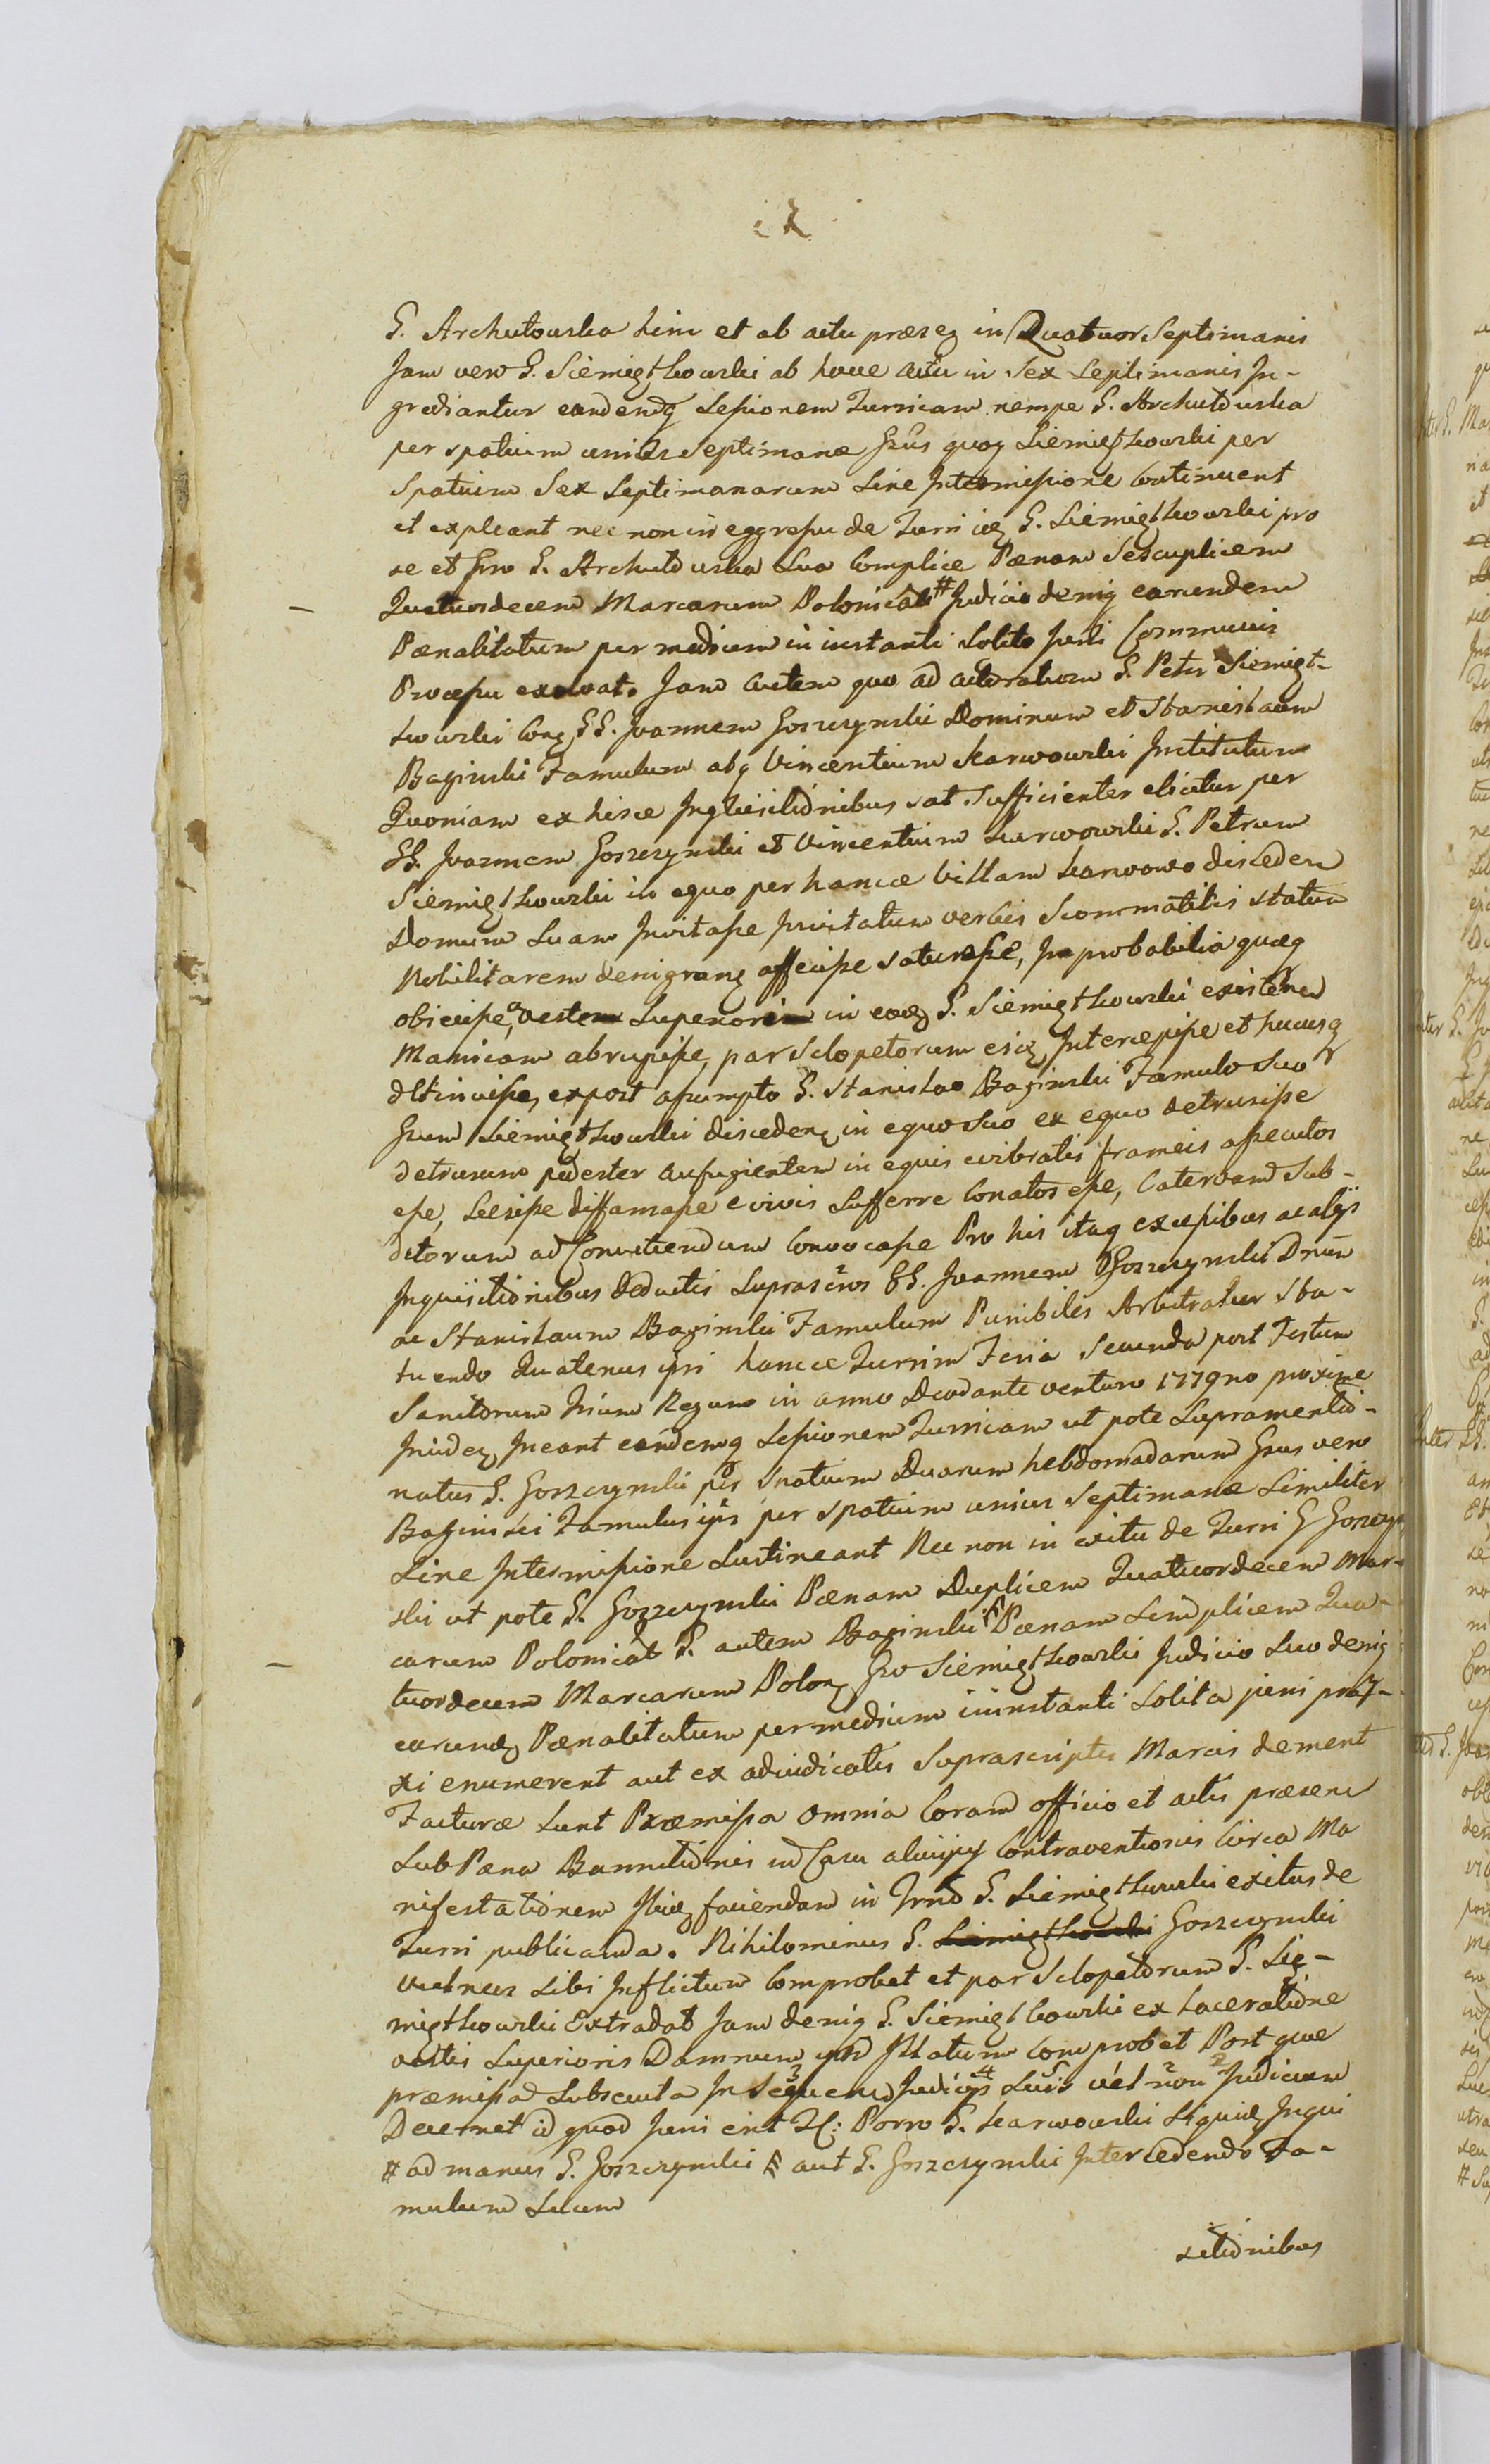 G. Archutowska hinc et ab actu præsēz in Quatuor Septimanis
Jam vero G. Siemigtkowski ab hocce actu in Sex Septimanis In-
grediantur eandemq Sessionem Turricam nempe G. Archutowska
per spatium unius Septimanæ Gnus quoq Siemigtkowski per
Spatium Sex Septimanarum Sine Intermissione Continuent
et expleant nec non in eggressu de Turri G. Siemigtkowski pro
se et pro G. Archutowska Sua Complice Pœnam Sescuplicem
Quatuordecem Marcarum Polonical # Judicio deniq earundem
Pœnalitatum per medium in instanti Solito Juri Communis
Processu exolvat. Jam autem quo ad actoratum G. Petri Siemigt-
kowski Conz GG. Joannem Goszczynski Dominum et Stanislaum
Baginski Famulum atq Vincentium Karwowski Institutum
Quoniam ex hisce Inquisitionibus sat Sufficienter elicitur per
GG. Joannem Goszczynski et Vincentium Karwowski G. Petrum
Siemigtkowski in equo per hancce Villam Karwowo disceden
Domum Suam Invitasse Invitatum verbis Scommatitis statum
Nobilitarem denigranz affecisse saturasse, Improbabilia quæq
obiecisse, vestem Superiorem in eodz G. Siemigtkowski existenz
Manicam abrupisse, par Sclopetorum eidz Intercepisse et hucusq
detinuisse, expost assumpto G. Stanislao Baginski Famulo Suo
Gnum Siemigtkowski discedenz in equo Suo ex equo detrusisse
detrusum pedester aufugientem in equis evibratis frameis assecutos
esse, Secuisse diffamasse e vivis Sufferre Conatos esse, Catervam Sub-
ditorum ad Convitiendum Convocasse Pro his itaq excessibus ac alys
Inquisitionibus deductis Suprascriptos GG. Joannem Goszczynski Dnum
ac Stanislaum Baginski Famulum Punibiles Arbitratur Sta-
tuendo Quatenus ipsi hancce Turrim Feria Secunda post Festum
Sanctorum Trium Regum in anno Deo dante venturo 1779no proxime
Incidez Ineant eandemq Sessionem Turricam ut pote Supramentio-
natus G. Goszczynski per Spatium Duarum hebdomadarum Gnus vero
Baginski Famulus ipsius per Spatium unius Septimanæ Similiter
Sine Intermissione Sustineant Nec non in exitu de Turri G Goszczyn
ski ut pote G. Goszczynski Pœnam Duplicem Quatuordecem Mar-
carum Polonical G. autem Baginski Pœnam Simplicem Qua-
tuordecem Marcarum Polonz Gno Siemigtkowski Judicio Suo deniq
earundz Pœnalitatum per medium in instanti Solita juri præf-
xi enumerent aut ex adiudicatis Suprascriptis Marcis dement
Facturæ Sunt Præmissa omnia Coram officio et actis præsenz
Sub Pœna Bannitionis in Casu aliuius Contraventionis Circa Ma
nifestationem faciendam in G. Siemigtkowski exitus de
Turri publicanda. Nihilominus G. Siemigtkowski Goszczynski
vulnus Sibi Inflictum Comprobet et par Sclopetorum G. Sie-
migtkowski Extradat Jam deniq G. Siemigtkowski ex laceratione
vestis Superioris Damnum ipsi Illatum Comprobet Post quæ
præmissa Subsecuta In Sequenz Judicys Suis vel non Judicium
Decernet id quod Juri erit Porro G. Karwowski Siquidz Inqui
# ad manus G. Goszczynski aut G. Goszczynski Intercedendo Fa-
mulum Suum
sitionibus